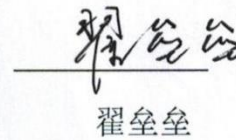 翟垒垒
翟垒垒